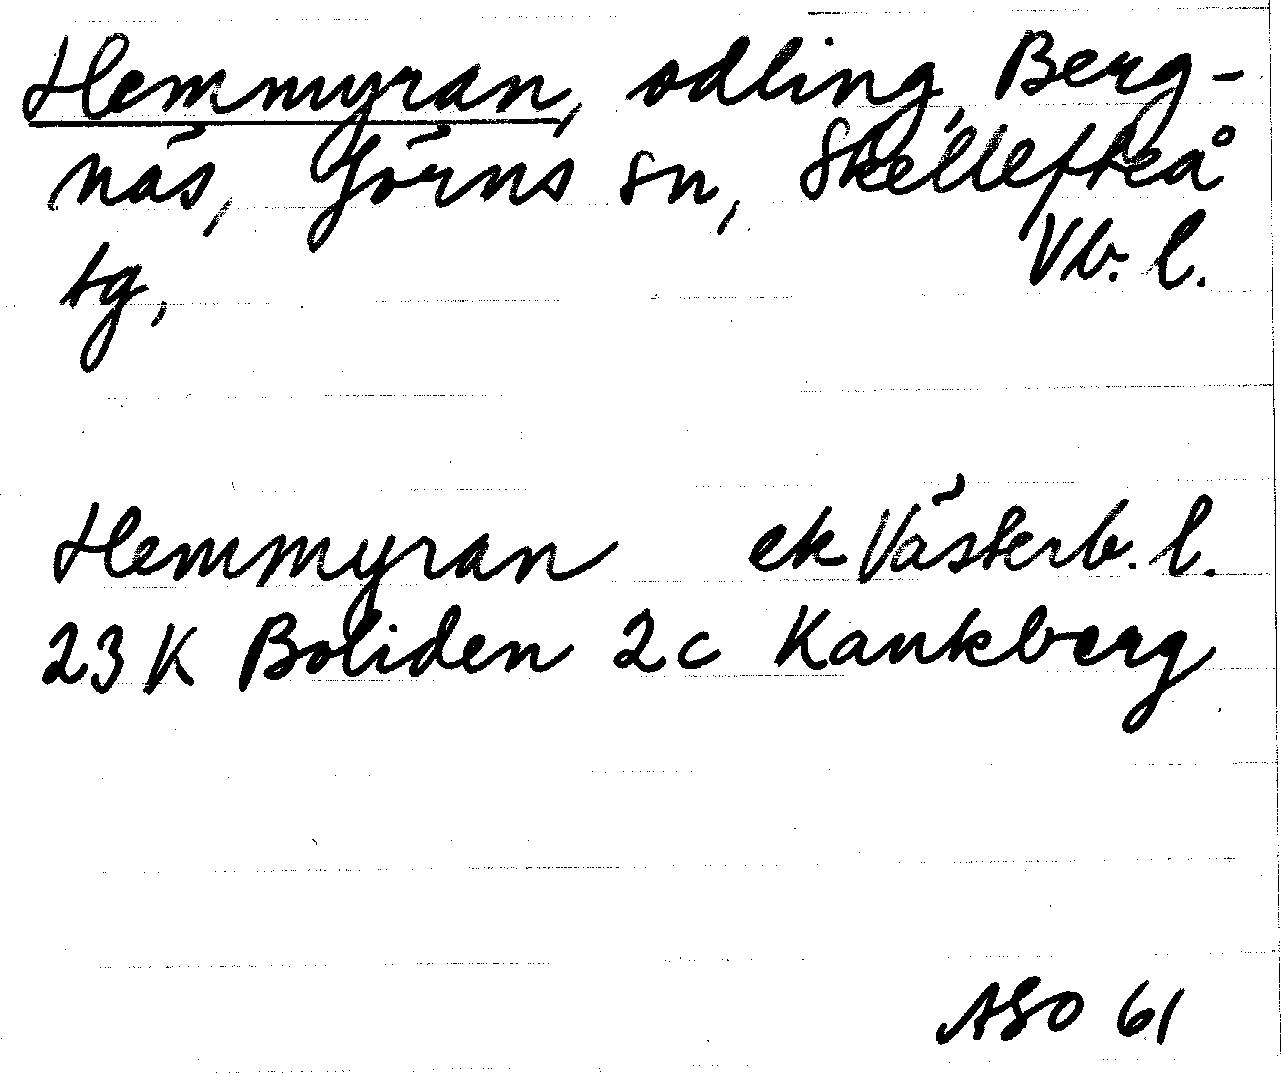 Hemmyran, odling, Berg-
näs, Jörns sn, Skellefteå
tg, Vb. l.
Hemmyran ek Västerb. l.
23 K Boliden 2 c Kankberg
ASO 61